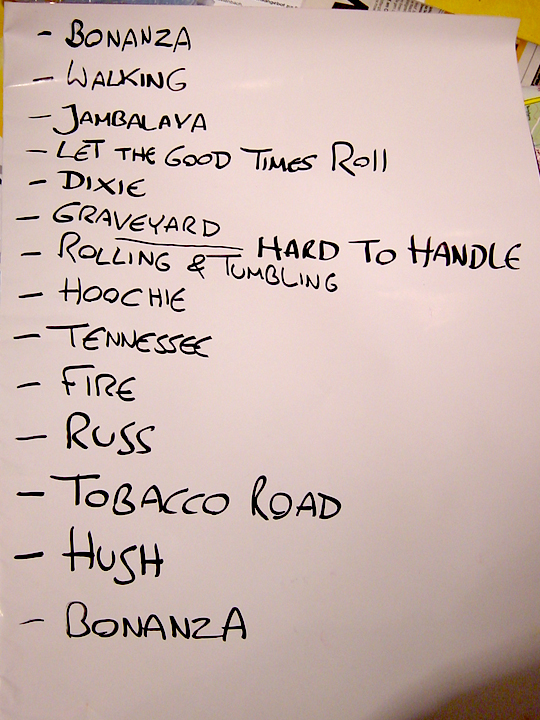 - BONANZA
- WALKING
- JAMBALAYA
- LET THE GOOD TIMES ROLL
- DIXIE
- GRAVEYARD
HARD TO HANDLE
- ROLLING & TUMBLING
- HOOCHIE
- TENNESSEE
- FIRE
- RUSS
- TOBACCO ROAD
- HUSH
- BONANZA